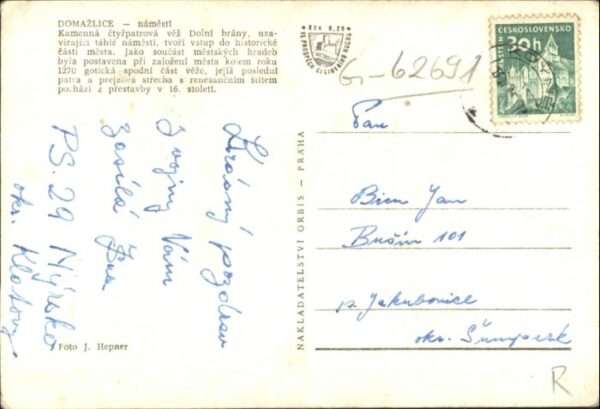 DOMAŽLICE — náměstí
Kamenná čtyřpatrová věž Dolní brány, uza-
vírající táhlé náměstí, tvoří vstup do historické
části města. Jako součást městských hradeb
byla postavena při založení města kolem roku
1270 gotická spodní část věže, její poslední
patra a prejzelná střecha s renesančním štítem
pochází z přestavby v 16. století.
Srdečný pozdrav
z vojny Vám
zasílá
P.S. 29 Nýrsko
okr. Klatovy
Foto J. Hepner
NAKLADATELSTVÍ ORBIS — PRAHA
G-62691
ČESKOSLOVENSKO
30h
Pan
Bien Jan
Bušín 101
p. Jakubovice
okr. Šumperk
R